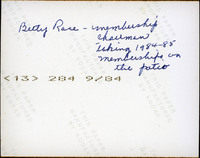 Betty Rase - membership
chairman
Taking 1984-85
memberships on
the patio
<13> 284 9/84